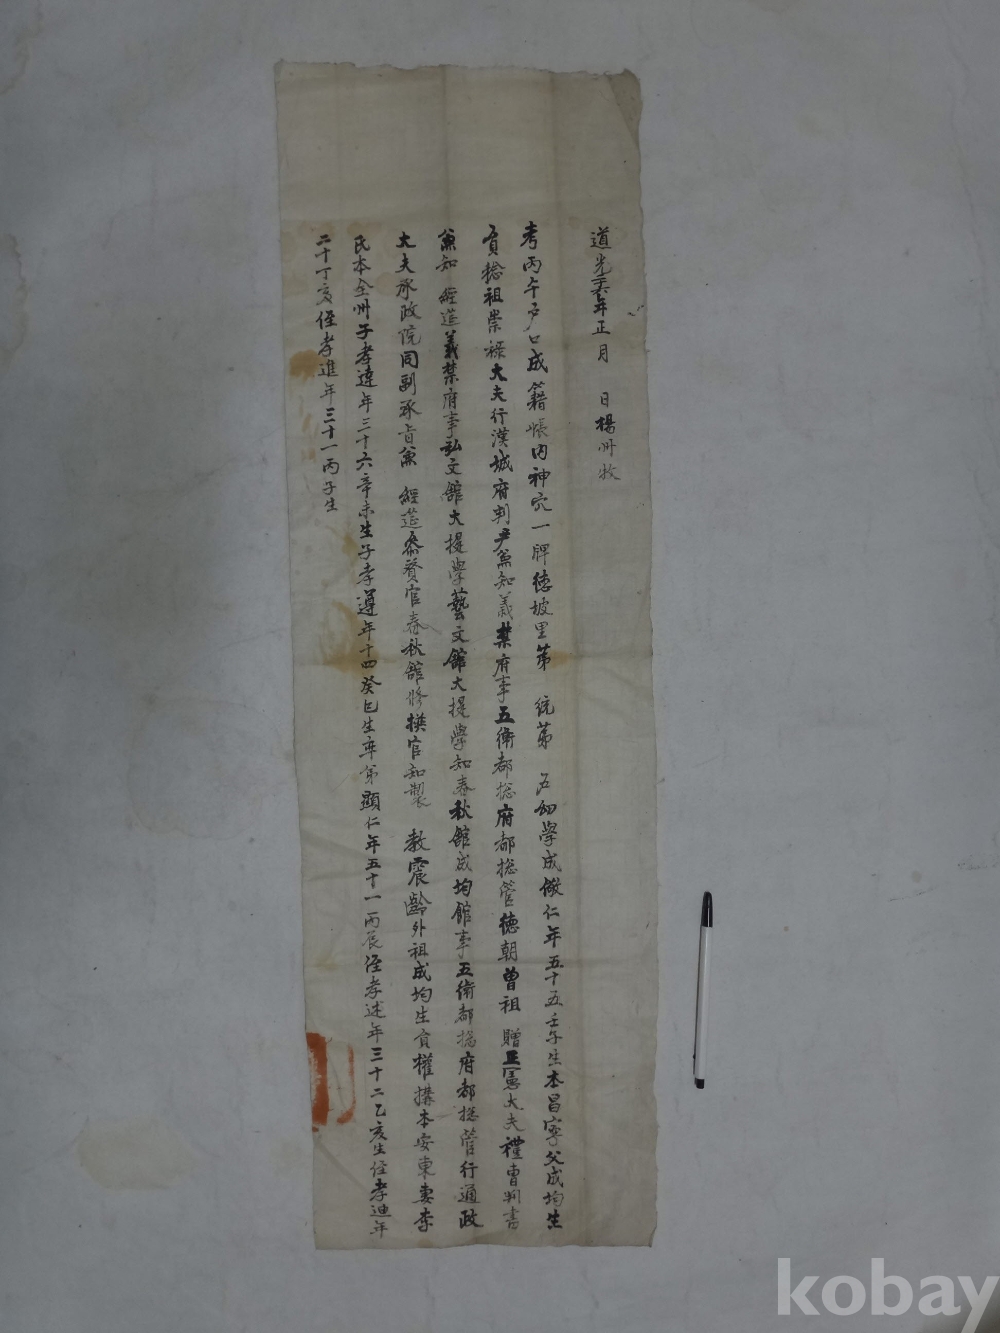 道光二十六年正月 日楊州牧
考丙午戶口成籍帳內神穴一牌德坡里第 統第 戶幼學成儆仁年五十五壬子生本昌寧父成均生
員 祖崇祿大夫行漢城府判尹兼知義禁府事五衛都捴府都捴管德朝曾祖 贈正憲大夫禮曹判書
兼知 經筵義禁府事弘文館大提學藝文館大提學知春秋館成均館事五衛都捴府都捴管行通政
大夫承政院同副承旨兼 經筵參贊官春秋館修撰官知製 教震齡外祖成均生員權 本安東妻李
氏本全州子孝達年三十六辛未生子孝遵年十四癸巳生率弟顯仁年五十一丙辰侄孝述年三十二乙亥生侄孝迪年
二十丁亥侄孝進年三十一丙子生
kobay